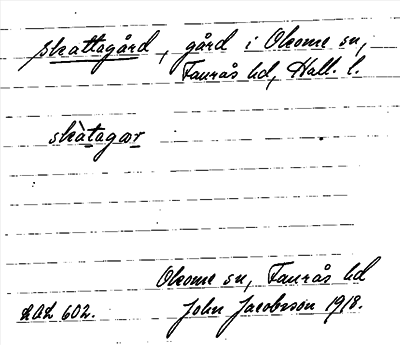 skattagård, gård i Okome sn,
Faurås hd, Hall. l.
skàtagar
Okome sn, Faurås hd
LAL 602. John Jacobsson 1918.